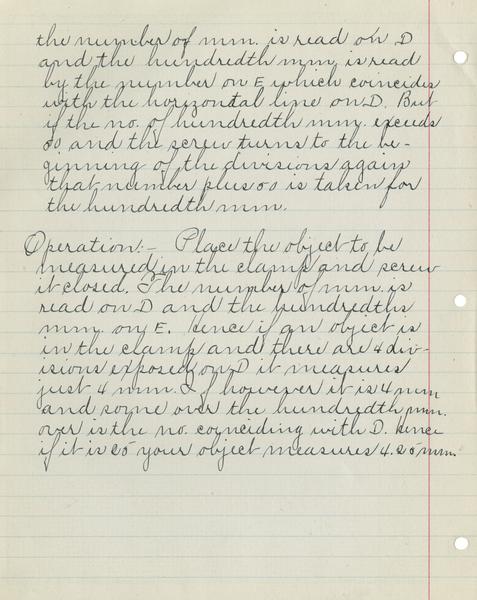 the number of mm. is read on D
and the hundredth mm. is read
by the number on E which coincides
with the horizontal line on D. But
if the no. of hundredth mm. exceeds
50 and the screw turns to the be-
ginning of the divisions again
that number plus 50 is taken for
the hundredth mm.
Operation:- Place the object to be
measured in the clamp and screw
it closed. The number of mm. is
read on D and the hundredths
mm. on E. Hence if an object is
in the clamp and there are 4 div-
isions exposed on D it measures
just 4 mm. If however it is 4 mm
and some over the hundredth mm.
over is the no. coinciding with D. Hence
if it is 25 your object measures 4.25 mm.